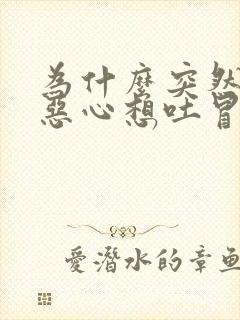 為什麼突然
惡心想吐冒
愛潛水的章魚